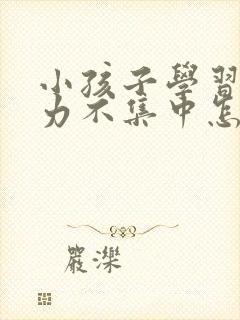 小孩子學習
力不集中怎
嚴濼